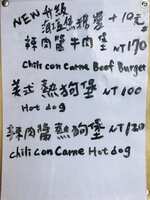 NEW 升級
海鹽焦糖醬 +10元
辣肉醬牛肉堡 NT170
Chili con carne Beef Burger
美式熱狗堡 NT100
Hot dog
辣肉醬熱狗堡 NT120
chili con Carne Hot dog